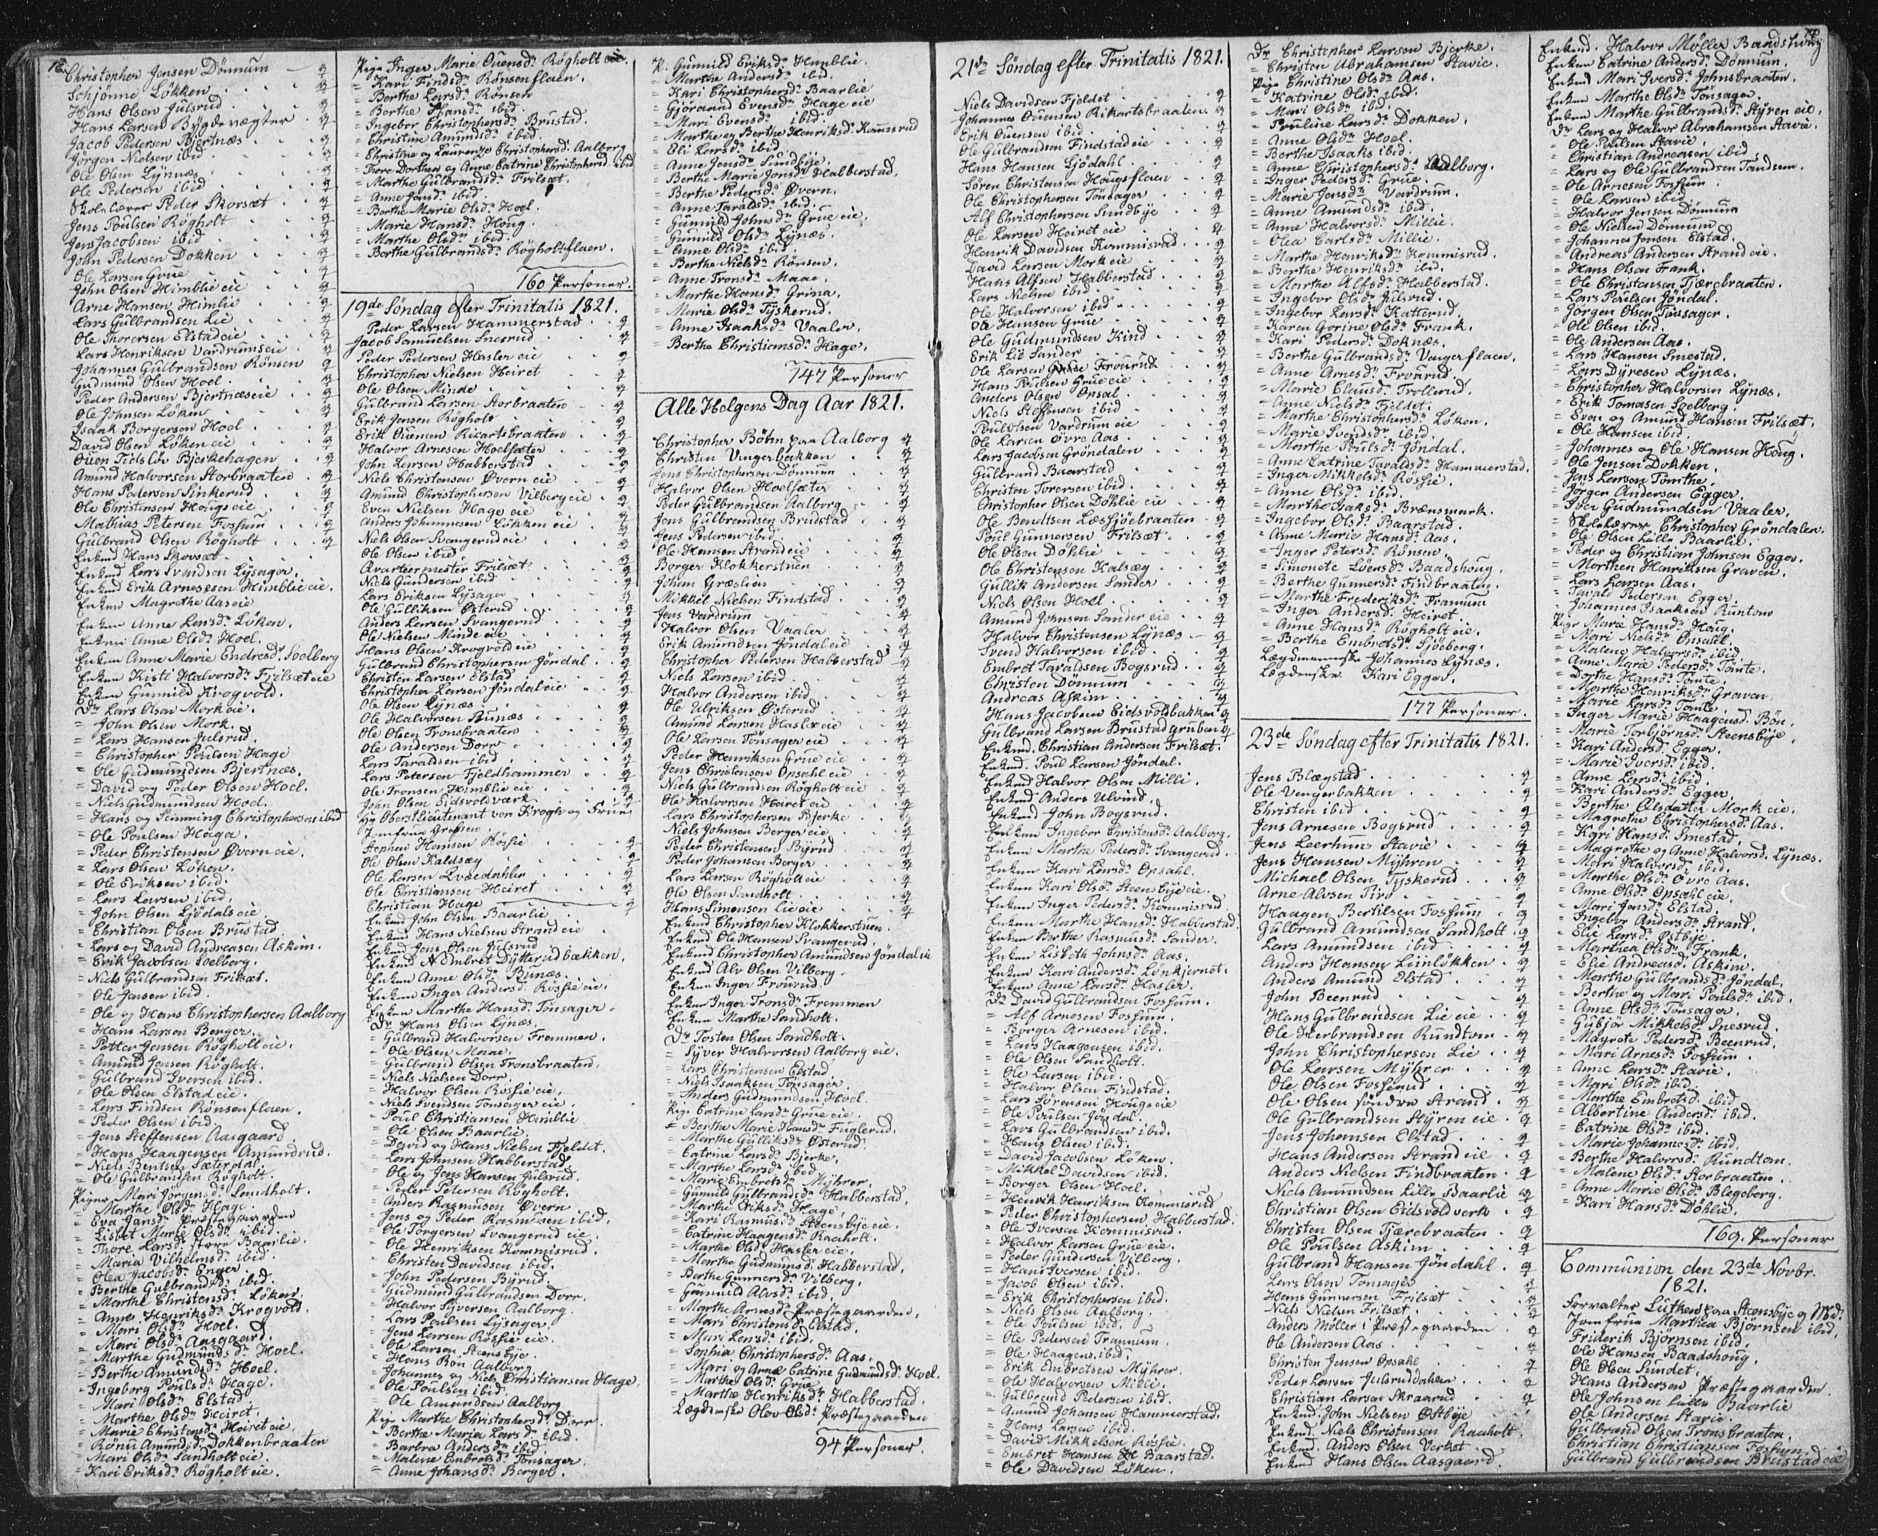 Christopher Jensen Dönnum - 2
Schjönne Lökken
Hans Olsen Julsrud
Hans Larsen Bygdevægter
Jacob Pedersen Bjertnæs
Jörgen Nielsen ibid
Ole Olsen Lÿnæs
Ole Pedersen ibid
Skolelærer Peder Skorsæt
Jens Poulsen Rögholt
Jens Jacobsen ibid
John Pedersen Dokken
Ole Larsen Grue
John Olsen Himblie eie
Arne Hansen Himlie
Lars Gulbrandsen Lie
Ole Thoresen Elstad eie
Lars Henriksen Vardrums eie
Johannes Gulbrandsen Rönsen
Gudmund Olsen Hoel
Peder Andersen Bjertnæs eie
Ole Johnsen Löken
Isaak Borgersen Hoel
David Olsen Löken eie
Ouen Tidslöv Bjerkehagen
Amund Halvorsen Storbraaten
Hans Pedersen Sinkerud
Ole Christensen Hougs eie
Mathias Petersen Fossum
Gulbrand Olsen Rögholt
Enkmd Hans Skorsæt
Enkmd Lars Svendsen Lÿsager
Enkmd Erik Arnesesen Himblie eie
Enken Magrethe Aas eie
Enken Anne Larsdr Löken
Enken Anne Olsdr Hoel
Enken Anne Marie Endresdr Soelberg
Enken Kisti Halvorsdr Frilsæt eie
Enken Gunnild Krogvold
Dr Lars Olsen Mork eie
= John Olsen Mork
= Lars Hansen Julsrud
= Christopher Poulsen Hage
= Ole Gudmundsen Bjertnæs
= David og Peder Olsen Hoel
= Niels Gudmundsen Hoel
= Hans og Flemming Christophersen ibid
= Ole Poulsen Hage
= Peder Christensen Övern eie
= Lars Olsen Löken
= Ole Eriksen ibid
= Lars Larsen ibid
= John Olsen Ljödals eie
= Christian Olsen Brustad
= Lars og David Andreasen Askim
= Erik Jacobsen Soelberg
= Niels Gulbrandsen Frilsæt
= Ole Jensen ibid
= Ole og Hans Christophersen Aalborg
= Hans Larsen Berger
= Petter Jensen Rögholt eie
= Amund Jensen Rögholt
= Gulbrand Iversen ibid
= Ole Olsen Elstad eie
= Lars Findsen Rönsenflaen
= Peder Olsen ibid
= Jens Steffensen Aasgaard
= Hans Haagensen Amundrud
= Niels Bentsen Sæterdal
= Ole Gulbrandsen Rögholt
Piger Mari Jörgensdr Sandholt
= Marthe Olsdr Hage
= Eva Jansdr Præstegaarden
= Lisbet Marie Olsdr ibid
= Thore Larsdr store Baarlie
= Maria Vilhelmsdr ibid
= Olea Jacobsdr Enger
= Berthe Gulbrandsdr ibid
= Marthe Christensdr Löken
= Annes Henriksdr Krogvold
= Mari Olsdr Hoel
= Mari Olsdr Aasgaard
= Marthe Gudmundsdr Hoel
= Berthe Amundsdr Hoel
= Ingeborg Poulsdr Hage
= Mari Olsdr Elstad
= Marthe Olsdr Heiret
= Marie Christensdr Heiret eie
= Rönu Amundsdr Dokkenbraaten
= Mari Olsdr Sandholt eie
= Kari Eriksdr Rögholt eie
Pige Inger Marie Ouensdr Rögholt eie
= Kari Findsdr Rönsenflaen
= Berthe Larsdr Rönsen
= Berthe Hansdr ibid
= Ingebor Christophersdr Brustad
= Christine Amundsdr ibid
= Christine og Laurenze Christophersdr Aalborg
= Tiere Dorthea og Anne Catrine Christophersd ibid
= Marthe Gulbrandsdr Frilsæt
= Anne Jensdr ibid
= Berthe Marie Olsdr Hoel
= Marie Hansdr Houg
= Marthe Olsdr ibid
= Berthe Gulbrandsdr Rögholtflaen
160 Personer
19de Söndag efter Trinitatis 1821
Peder Larsen Hammerstad
Jacob Samuelsen Snesrud
Peder Pedersen Hasler eie
Christopher Nielsen Heiret
Ole Olsen Minde
Gulbrand Larsen Storbraaten
Erik Jensen Rögholt
Erik Ouensen Ricartsbraaten
Halvor Arnesen Hoelsæter
John Larsen Habberstad
Niels Christensen Övern eie
Amund Christophersen Vilberg eie
Even Nielsen Hage eie
Anders Johannesen Lökken eie
Niels Olsen Svangerud eie
Ole Olsen ibid
Qvartermester Frilsæt
Niels Gundersen ibid
Lars Eriksen Lÿsager
Ole Gulliksen Österud
Anders Larsen Svangerud
Ole Nielsen Minde eie
Hans Olsen Krogvold eie
Gulbrand Christophersen Jöndal
Christen Larsen Elstad
Christopher Larsen Jöndal eie
Ole Olsen Lÿnæs
Ole Halvorsen Bunæs
Ole Olsen Tronsbraaten
Ole Andersen Dorr
Lars Taraldsen ibid
Lars Petersen Fjeldhammer
Ole Tronsen Himblie eie
John Olsen Eidsvoldværk
Hr Oberstlieutenant von Krogh og Frue
Jomfrue Gressen
Stephen Hansen Rossie
Ole Olsen Kaldsæg
Ole Larsen Lvaedahler
Ole Christiansen Heiret
Christian Hage
Enkmd John Olsen Baarlie
Enkmd Hans Nielsen Strand eie
Enkmd Jens Olsen Julsrud
Enkmd Nembret Dÿtterud bakken
Enken Anne Olsdr Bunæs
Enken Inger Andersdr Rössie eie
Enken Marthe Hansdr Tönsager
Dr Hans Olsen Lÿnæs
= Gulbrand Halvorsen Fremmen
= Ole Olsen Maae
= Gulbrand Olsen Tronsbraaten
= Niels Nielsen Dorr
= Halvor Olsen Rossie eie
= Niels Svendsen Tönsager eie
= Poul Christiansen Himblie
= Ole Olsen Baarlie
= David og Hans Nielsen Fjeldet
= Lars Johnsen Habberstad
= Ole og Jens Hansen Julsrud
= Peter Petersen Rögholt
= Anders Rasmusen Övern
= Jens og Peder Rasmusen ibid
= Ole Torgersen Svangerud eie
= Ole Henriksen Kommisrud
= Christen Davidsen ibid
= John Pedersen Bÿrud
= Gudmund Gulbrandsen Dorr
= Halvor Sÿversen Aalborg
= Lars Poulsen Lÿsager
= Jens Larsen Rössie eie
= Ole Larsen Stensbÿe
= Hans Bön Aalborg
= Johannes og Niels Christiansen Hage
= Ole Poulsen ibid
= Ole Amundsen Aalborg
Pige Marthe Christophersdr Dorr
= Berthe Maria Larsdr ibid
= Barbra Andersdr ibid
= Malene Embretsdr Tönsager
= Anne Johansdr Berger
P. Gunnild Eriksdr Himblie
= Marthe Andersdr ibid
= Kari Christophersdr Baarlie
= Gjöraand Evensdr Hage eie
= Mari Evensdr ibid
= Marthe og Berthe Henriksdr Komisrud
= Eli Larsdr ibid
= Anne Jensdr Sundbÿe
= Berthe Marie Jonsdr Habberstad
= Berthe Pedersdr Övern
= Anne Taraldsdr ibid
= Gunnild Johnsdr Grue eie
= Gunnild Olsdr Lÿnæs
= Anne Olsdr ibid
= Berthe Nielsdr Rönsen
= Anne Tronsdr Maae
= Marthe Hansdr Grina
= Marie Olsdr Tÿskerud
= Anne Isaaksdr Vaaler
= Berthe Christiansdr Hage
147 Personer
Alle Helgens Dag Aar 1821
Christopher Böhn paa Aalborg
Christen Vingerbakken
Jens Christophersen Dönnum
Halvor Olsen Hoelsæter
Peder Gulbrandsen Aalborg
Jens Gulbrandsen Brustad
Jens Pedersen ibid
Ole Hansen Strand eie
Borger Klokkerstuen
Johan Græslien
Mikkel Nielsen Findstad
Jens Vardrum
Halvor Olsen Vaaler
Erik Amundsen Jöndal eie
Christopher Pedersen Habberstad
Niels Larsen ibid
Halvor Andersen ibid
Ole Ulriksen Österud
Amund Larsen Hasler eie
Ole Larsen Tönsager eie
Peder Henriksen Grue eie
Jens Christensen Opsahl eie
Niels Gulbrandsen Rögholt eie
Ole Halvorsen Heiret eie
Lars Christophersen Bjerke
Niels Johnsen Berger eie
Peder Christensen Bÿrud
Peder Johansen Berger
Lars Larsen Rögholt eie
Ole Olsen Sandholt
Hans Simensen Lie eie
Enkmd Christopher Klokkerstuen
Enkmd Ole Hansen Svangerud
Enkmd Christopher Amundsen Jöndal eie
Enkmd Alv Olsen Vilberg
Enken Inger Frourud
Enken Inger Tronsdr Fremmen
Enken Marthe Sandholt
Dr Tosten Olsen Sandholt
= Sÿver Halvorsen Aalborg eie
= Lars Christensen Elstad
= Niels Isaaksen Tönsager
= Anders Gudmundsen Hoel
Pige Catrine Larsdr Grue eie
= Berthe Marie Hansdr Fuglerud
= Marthe Gulliksdr Österud
= Catrine Larsdr Bjerke
= Marthe Larsdr ibid
= Marie Embretsdr Mÿhrer
= Gunnild Gulbrandsdr Habberstad
= Marthe Eriksdr Hage
= Kari Rasmusdr Steensbÿe eie
= Catrine Haagensdr Raaholt
= Marthe Olsdr Hasler eie
= Marthe Gudmundsdr Habberstad
= Berthe Gunnersdr Vilberg
= Gunnild Alvsdr ibid
= Marthe Arnesdr Præstegaarden
= Mari Christensdr Elstad
= Mari Larsdr ibid
= Sophia Christophersdr Aas
= Mari og Anne Catrine Gudmundsdr Hoel
= Marthe Olsdr Grue
= Marthe Henriksdr Habberstad
Lægdenske Olev Olsdr Præstegaarden
94 Personer
21de Söndag efter Trinitatis 1821
Niels Davidsen Fjeldet
Johannes Ouensen Rikartsbraaten
Erik Ouensen ibid
Ole Gulbrandsen Findstad eie
Hans Hansen Ljödahl
Sören Christensen Hougsflaen
Ole Christophersen Tönsager
Alf Christophersen Sundbÿe
Ole Larsen Heiret eie
Henrik Davidsen Kommisrud
David Larsen Mork eie
Hans Alfsen Habberstad
Lars Nielsen ibid
Ole Halvorsen ibid
Ole Hansen Grue
Ole Gudmundsen Kind
Erik Lie Sander
Ole Larsen Frourud
Hans Poulsen Grue eie
Anders Olsen Opsal
Niels Steffensen ibid
Poul Olsen Vardrum eie
Ole Larsen Övre Aas
Lars Jacobsen Gröndalen
Gulbrand Baarstad
Christen Toresen ibid
Christopher Olsen Döhlie eie
Ole Bendtsen Lessjöebraaten
Poul Gunnersen Frilsæt
Ole Olsen Döhlie
Ole Christensen Kalsæg
Gullik Andersen Sander
Niels Olsen Hoel
Amund Johnsen Sander eie
Halvor Christensen Lÿnæs
Svend Halvorsen ibid
Embret Taraldsen Bogsrud
Christen Dönnum
Andreas Askim
Hans Jacobsen Eidsvoldsbakken
Gulbrand Larsen Brustad gruben
Enkmd. Christian Andersen Frilsæt
Enkmd. Poul Larsen Jöndal
Enkmd Halvor Olsen Milli
Enkmd Anders Ulvind
Enkmd John Bogsrud
Enken Ingebor Christensdr Aalborg
Enken Marthe Pedersdr Svangerud
Enken Kari Larsdr Opsahl
Enken Kari Olsdr Steensbÿe eie
Enken Inger Pedersdr Kommisrud
Enken Marthe Hansdr Habberstad
Enken Berthe Rasmusdr Sander
Enken Lisbeth Johnsdr Aas
Enken Kari Andersdr Lönkjernet
Enken Anne Larsdr Hasler
Dr David Gulbrandsen Fossum
= Alf Arnesen Fossum
= Börger Arnesen ibid
= Lars Haagensen ibid
= Ole Olsen Sandholt
= Ole Larsen ibid
= Halvor Olsen Findstad
= Lars Sörensen Hougs eie
= Ole Poulsen Jöndal
= Lars Gulbrandsen ibid
= Hans Olsen ibid
= David Jacobsen Löken
= Mikkel Davidsen ibid
= Borger Olsen Hoel
= Henrik Henriksen Kommisrud
= Peder Christophersen Habberstad
= Ole Iversen Kommisrud
= Halvor Larsen Grue eie
= Peder Gundersen Vilberg
= Hans Iversen ibid
= Jacob Olsen ibid
= Erik Christophersen ibid
= Niels Olsen Aalborg
= Ole Poulsen ibid
= Ole Pedersen Trannum
= Ole Haagens. ibid
= Erik Embretsen Mÿhrer
= Ole Halvorsen Milli
= Gulbrand Pedersen ibid
= Amund Johansen Hammerstad
= Hans Larsen ibid
= David Mikkelsen Rossie
= Embret Hansen Baarstad
= Ole Davidsen Löken
Dr Christopher Larsen Bjerke
= Christen Abrahamsen Stavie
Pige Christine Olsdr Aas
= Katrine Olsdr ibid
= Mari Olsdr ibid
= Pouline Larsdr Dokken
= Anne Olsdr Hoel
= Berthe Isaaks ibid
= Anne Christophersdr Aalborg
= Inger Pedersdr Grue
= Marie Jensdr Vardrum
= Anne Amundsdr ibid
= Anne Halvorsdr Millie
= Olea Carlsdr Millie
= Marthe Henriksdr Kommisrud
= Berthe Henriksdr ibid
= Marthe Alfsdr Habberstad
= Ingebor Olsdr Julsrud
= Ingebor Larsdr Katterud
= Karen Gorine Olsdr Frank
= Kari Pedersdr Doknæs
= Berthe Gulbrandsdr Vingerflaen
= Anne Arnesdr Frourud
= Marie Elunsdr Trollerud
= Anne Nielsdr Fjeldet
= Marthe Christophersdr Löken
= Marie Svendsdr ibid
= Marthe Poulsdr Jöndal
= Anne Catrine Taraldsdr Hammerstad
= Inger Mikkelsdr Rossie
= Anne Olsdr ibid
= Marthe Isaksdr Brænsmark
= Ingebor Olsdr Baarstad
= Anne Marie Hansdr Aas
= Inger Petersdr Rönsen
= Simonete Löensdr Baadshoug
= Berthe Gunnersdr Findbraaten
= Marthe Frederiksdr Tramum
= Inger Andersdr Heiret
= Anne Hansdr Rögholt eie
= Berthe Embretsdr Sjöeberg
Lægdemanske Johannes Lÿnæs
Lægdenske Kari Egger
177 Personer
23de Söndag efter Trinitatis 1821
Jens Blægstad
Ole Vengerbakken
Christen ibid
Jens Arnesen Bogsrud
Jens Leerhuus Stavie
Jens Hansen Mÿhren
Michael Olsen Tÿskerud
Arne Alvsen Tiro
Haagen Bertilsen Fossum
Gulbrand Amundsen Sandholt
Lars Amundsen ibid
Anders Hansen Liinlökken
Anders Amund Elstad
John Beenrud
Hans Gulbrandsen Lie eie
Ole Herbrandsen Rundtom
John Christophersen Lie
Ole Larsen Mÿhrer
Ole Olsen Fosserud
Ole Olsen söndre Strand
Ole Gulbrandsen Stÿren eie
Jens Johansen Elstad
Hans Andersen Strand eie
Anders Nielsen Findbraaten
Niels Amundsen Lille Baarlie
Christian Olsen Eidsvoldverk
Christen Olsen Tjærebraaten
Ole Poulsen Askim
Gulbrand Hansen Jöndahl
Lars Olsen Tönsager
Hans Gunnersen Frilsæt
Niels Nielsen Frilsæt
Anders Möller i Præstegaarden
Ole Andersen Aas
Christen Jensen Opsahl
Peder Larsen Julsruddalen
Christian Larsen Skraarud
Enkmd. John Nielsen Östbÿe
Enkmd. Niels Christensen Raaholt
Enkmd. Anders Olsen Verket
Enkmd Hans Olsen Aasgaard
Enkmd. Halvor Møller Baadshoug
Enken Catrine Andersdr Dönnum
Enken Mari Iversdr Johnsbraaten
Enken Marthe Olsdr Tönsager
Enken Marthe Gulbrandsdr Stÿren eie
Dr Lars og Halvor Abrahamsen Stavie
= Ole Poulsen Stavie
= Christian Andreasen ibid
= Lars og Ole Gulbrandsen Tondsem
= Ole Arnesen Fossum
= Ole Larsen ibid
= Halvor Jensen Dönnum
= Ole Nielsen Dönnum
= Johannes Jensen Elstad
= Andreas Andersen Strand eie
= Hans Olsen Frank
= Ole Christensen Tjærebraaten
= Lars Poulsen Jöndal
= Jörgen Olsen Tönsager
= Ole Olsen ibid
= Ole Andersen Aas
= Lars Hansen Smestad
= Lars Dÿresen Lÿnæs
= Christopher Halvorsen Lÿnæs
= Erik Tomasen Soelberg
= Even og Amund Hansen Frilsæt
= Ole Hansen ibid
= Johannes og Ole Hansen Houg
= Ole Jensen Dokken
= Jens Larsen Tomthe
= Jörgen Andersen Egger
= Iver Gudmundsen Vaaler
= Skolelærer Christopher Gröndalen
= Ole Olsen Lille Baarlie
= Peder og Christian Johnsen Egger
= Marthen Henriksen Graven
= Lars Larsen Aas
= Tarald Pedersen Egger
= Johannes Isaaksen Runtom
Pige Marie Hansdr Houg
= Mari Nielsdr Opsahl
= Malene Halvorsdr ibid
= Anne Marie Pedersdr Tomte
= Dorthe Hansdr Tomte
= Marthe Henriksdr Graven
= Marie Larsdr Tomte
= Inger Marie Haagensdr Bön
= Marie Torbjörnsdr Steensbÿe
= Kari Andersdr Egger
= Marie Iversdr ibid
= Anne Larsdr ibid
= Kari Andersdr Egger
= Berthe Olsdatter Mork eie
= Magrethe Christophersdr Aas
= Kari Hansdr Smestad
= Magrethe og Anne Halvorsdr Lÿnæs
= Mari Halvorsdr ibid
= Marthe Olsdr Övre Aas
= Anne Olsdr Opsahl eie
= Mari Jensdr Elstad
= Ingebor Andersdr Strand
= Elie Larsdr Östbÿe
= Marthea Olsdr Frank
= Elie Andreasdr Askim
= Marthe Gulbrandsdr Jöndal
= Berthe og Mari Poulsdr ibid
= Anne Olsdr Tönsager
= Gubjör Mikkelsdr Snesrud
= Mayrete Pedersdr Beenrud
= Mari Arnesdr Fossum
= Anne Larsdr Stavie
= Mari Olsdr ibid
= Marthe Embretsdr ibid
= Albertine Andersdr ibid
= Catrine Olsdr ibid
= Marie Johannesdr ibid
= Berthe Halvorsdr Rundtom
= Malene Olsdr Storbraaten
= Anne Marie Olsdr Blegeberg
= Kari Hansdr Döhlie
169 Personer
Communion den 23de Novbr.
1821.
Forvalter Lütken paa Steensbÿe og Md:
Jomfrue Marthea Björnsen ibid
Friderik Björnsen ibid
Ole Hansen Baadshoug
Ole Olsen Sundet
Hans Andersen Præstegaarden
Ole Johnsen Lille Baarlie
Ole Andersen Stavie
Gulbrand Olsen Tronsbraaten
Christian Christiansen Fossum
Gulbrand Gulbrandsen Brustad eie